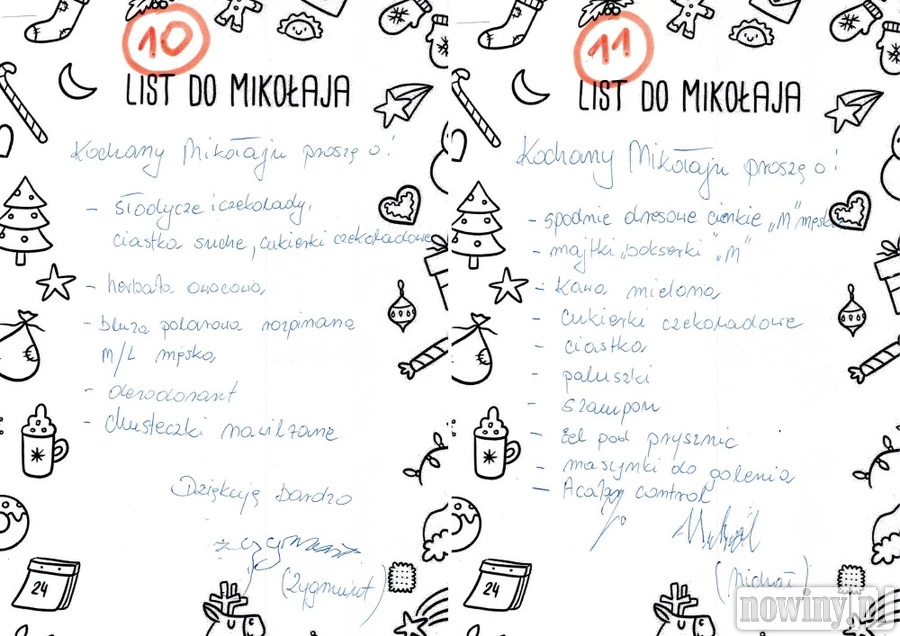 10
LIST DO MIKOŁAJA
Kochany Mikołaju proszę o!
- słodycze i czekolady,
ciastka suche, cukierki czekoladowe
- herbata owocowa,
- bluza polarowa rozpinana
M/L męska,
- dezodorant
- chusteczki nawilżane
Dziękuję bardzo
(Zygmunt)
24
11
LIST DO MIKOŁAJA
Kochany Mikołaju proszę o!
- spodnie dresowe cienkie „M" męskie
- majtki „bokserki" „M"
- kawa mielona,
- cukierki czekoladowe
- ciastka,
- paluszki
- szampon
- żel pod prysznic
- maszynki do golenia
- control
(Michał)
24
nowiny.pl